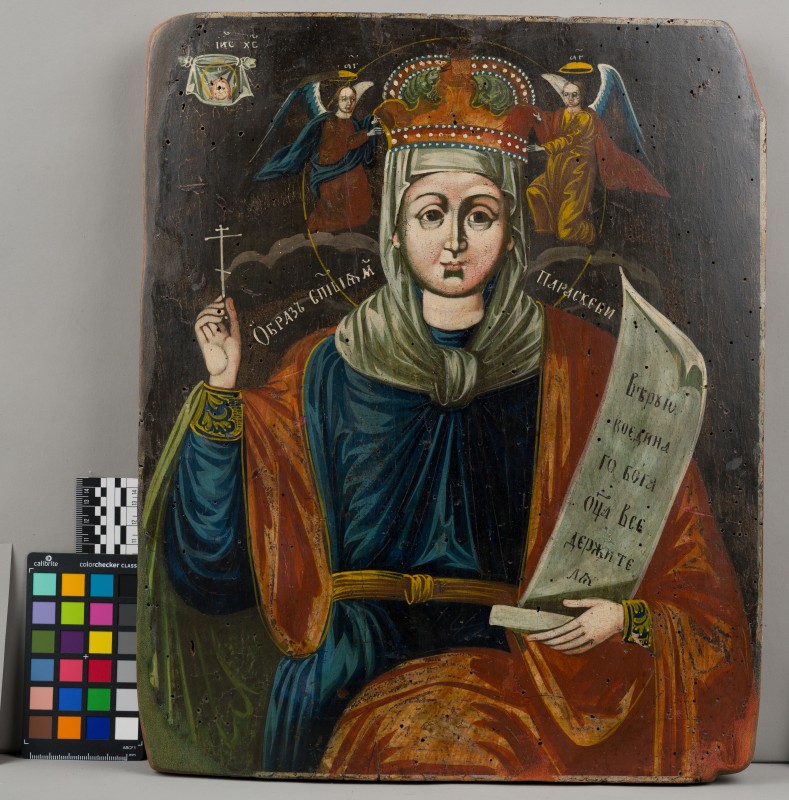 ІИС ХС
АГ
АГ
ОБРАЗЪ
ПАРАСКЕВИ
ВѢРУЮ
ВОЕДИНА
ГО БОГА
ОЦА ВСЕ
ДЕРЖИТЕ
ЛѦ
calibrite
colorchecker CLASSIC